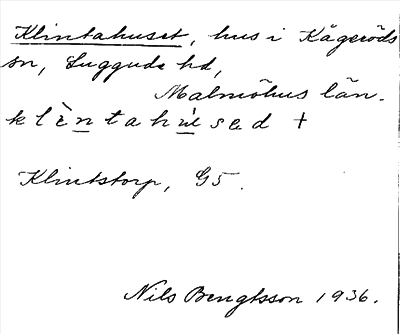 Klintahuset, hus i Kågeröds
sn, Luggude hd,
Malmöhus län.
klèntahúsəd +
Klintstorp, G5.
Nils Bengtsson 1936.